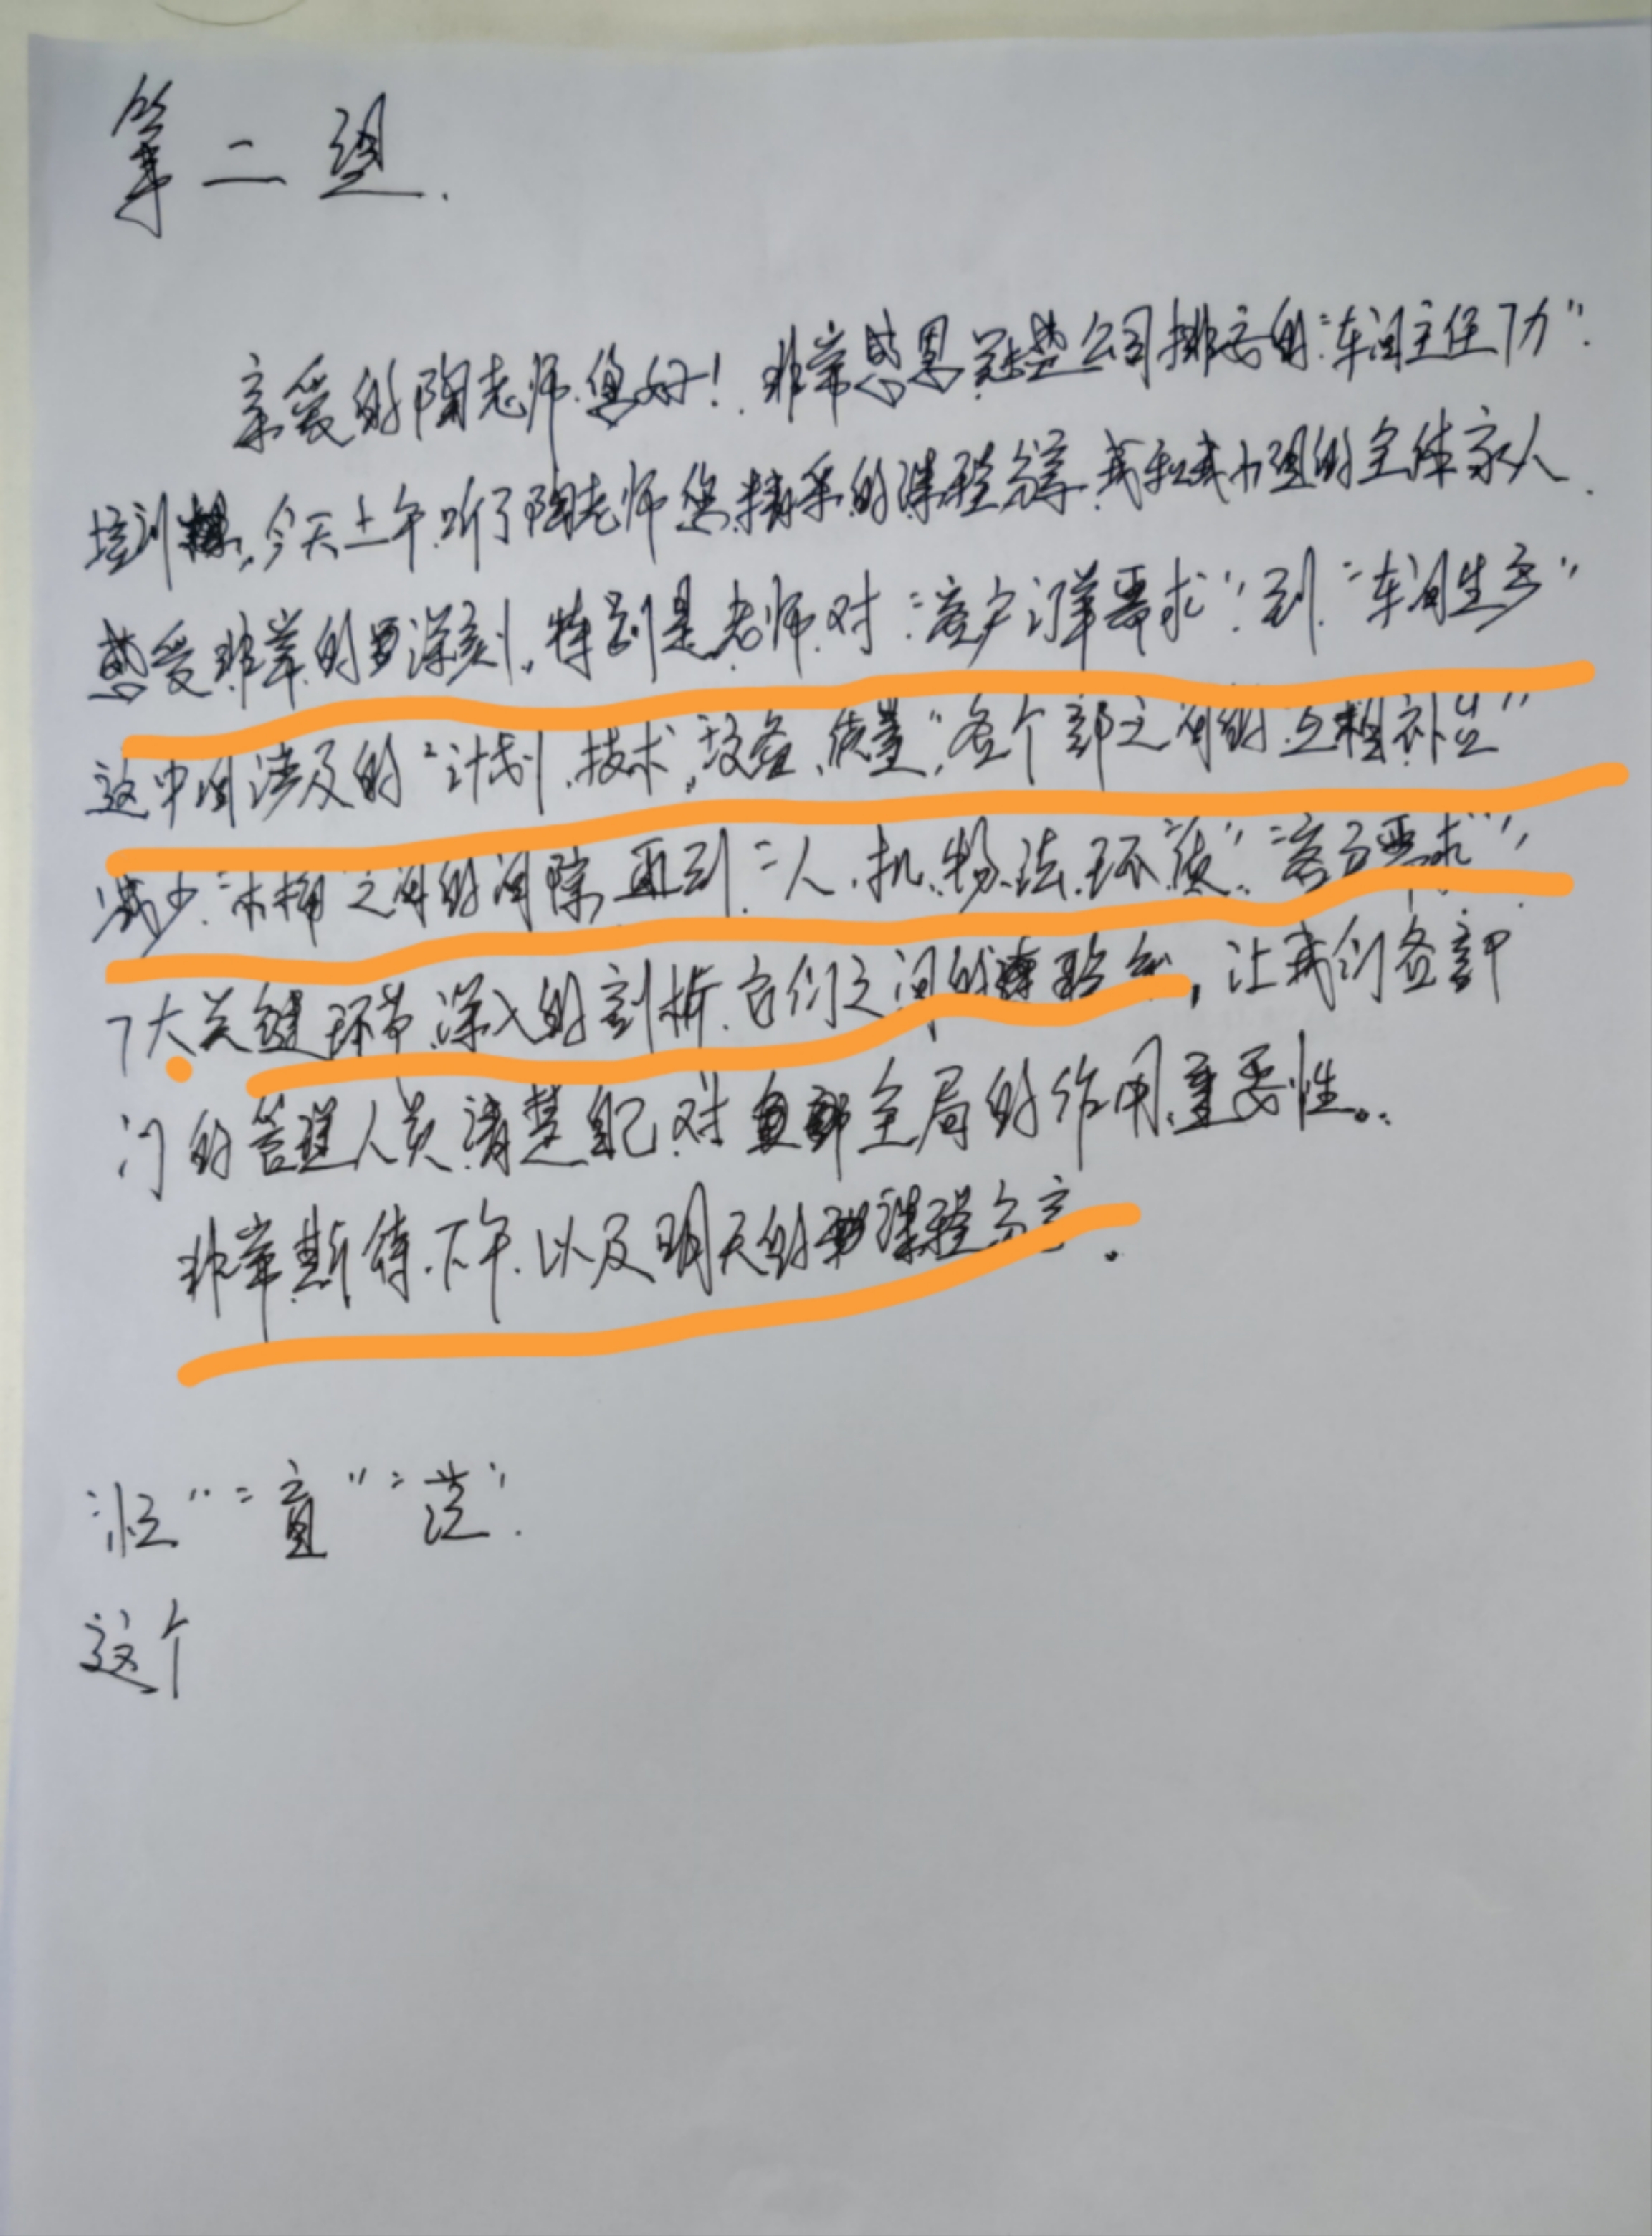 第二组.
亲爱的陶老师您好!非常感恩冠楚公司排子的:"车间主任7力".
培训,今天上午.听了陶老师您.精采的课程分享.我和我小组的全体家人.
感受非常的深刻.特别是老师.对:"客户订单需求".到."车间生产"
这中间涉及的"计划.技术,设备、质量",各个部之间的.互相补位"
减少."木桶"之间的间隙,再到."人.机.物.法.环.质".:"客户要求",
7大关键环节.深入的剖析.它们之间的,让我们各部
门的管理人员.清楚自己.对全局的作用.重要性。
非常期待.下午.以及明天的课程分享.
:"忙""盲""茫".
这个